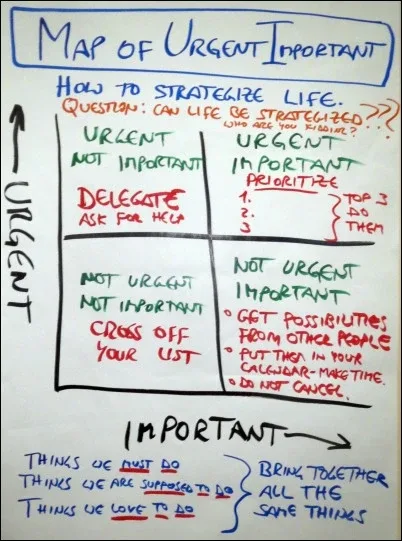 MAP OF URGENT IMPORTANT
HOW TO STRATEGIZE LIFE.
QUESTION: CAN LIFE BE STRATEGIZED???
WHO ARE YOU KIDDING?
URGENT
NOT IMPORTANT
DELEGATE
ASK FOR HELP
URGENT
IMPORTANT
PRIORITIZE
1.
2.
3
TOP 3
DO
THEM
URGENT
NOT URGENT
NOT IMPORTANT
CROSS OFF
YOUR LIST
NOT URGENT
IMPORTANT
• GET POSSIBILITIES
FROM OTHER PEOPLE
• PUT THEM IN YOUR
CALENDAR-MAKE TIME.
• DO NOT CANCEL.
IMPORTANT
THINGS WE MUST DO
THINGS WE ARE SUPPOSED TO DO
THINGS WE LOVE TO DO
BRING TOGETHER
ALL THE
SAME THINGS